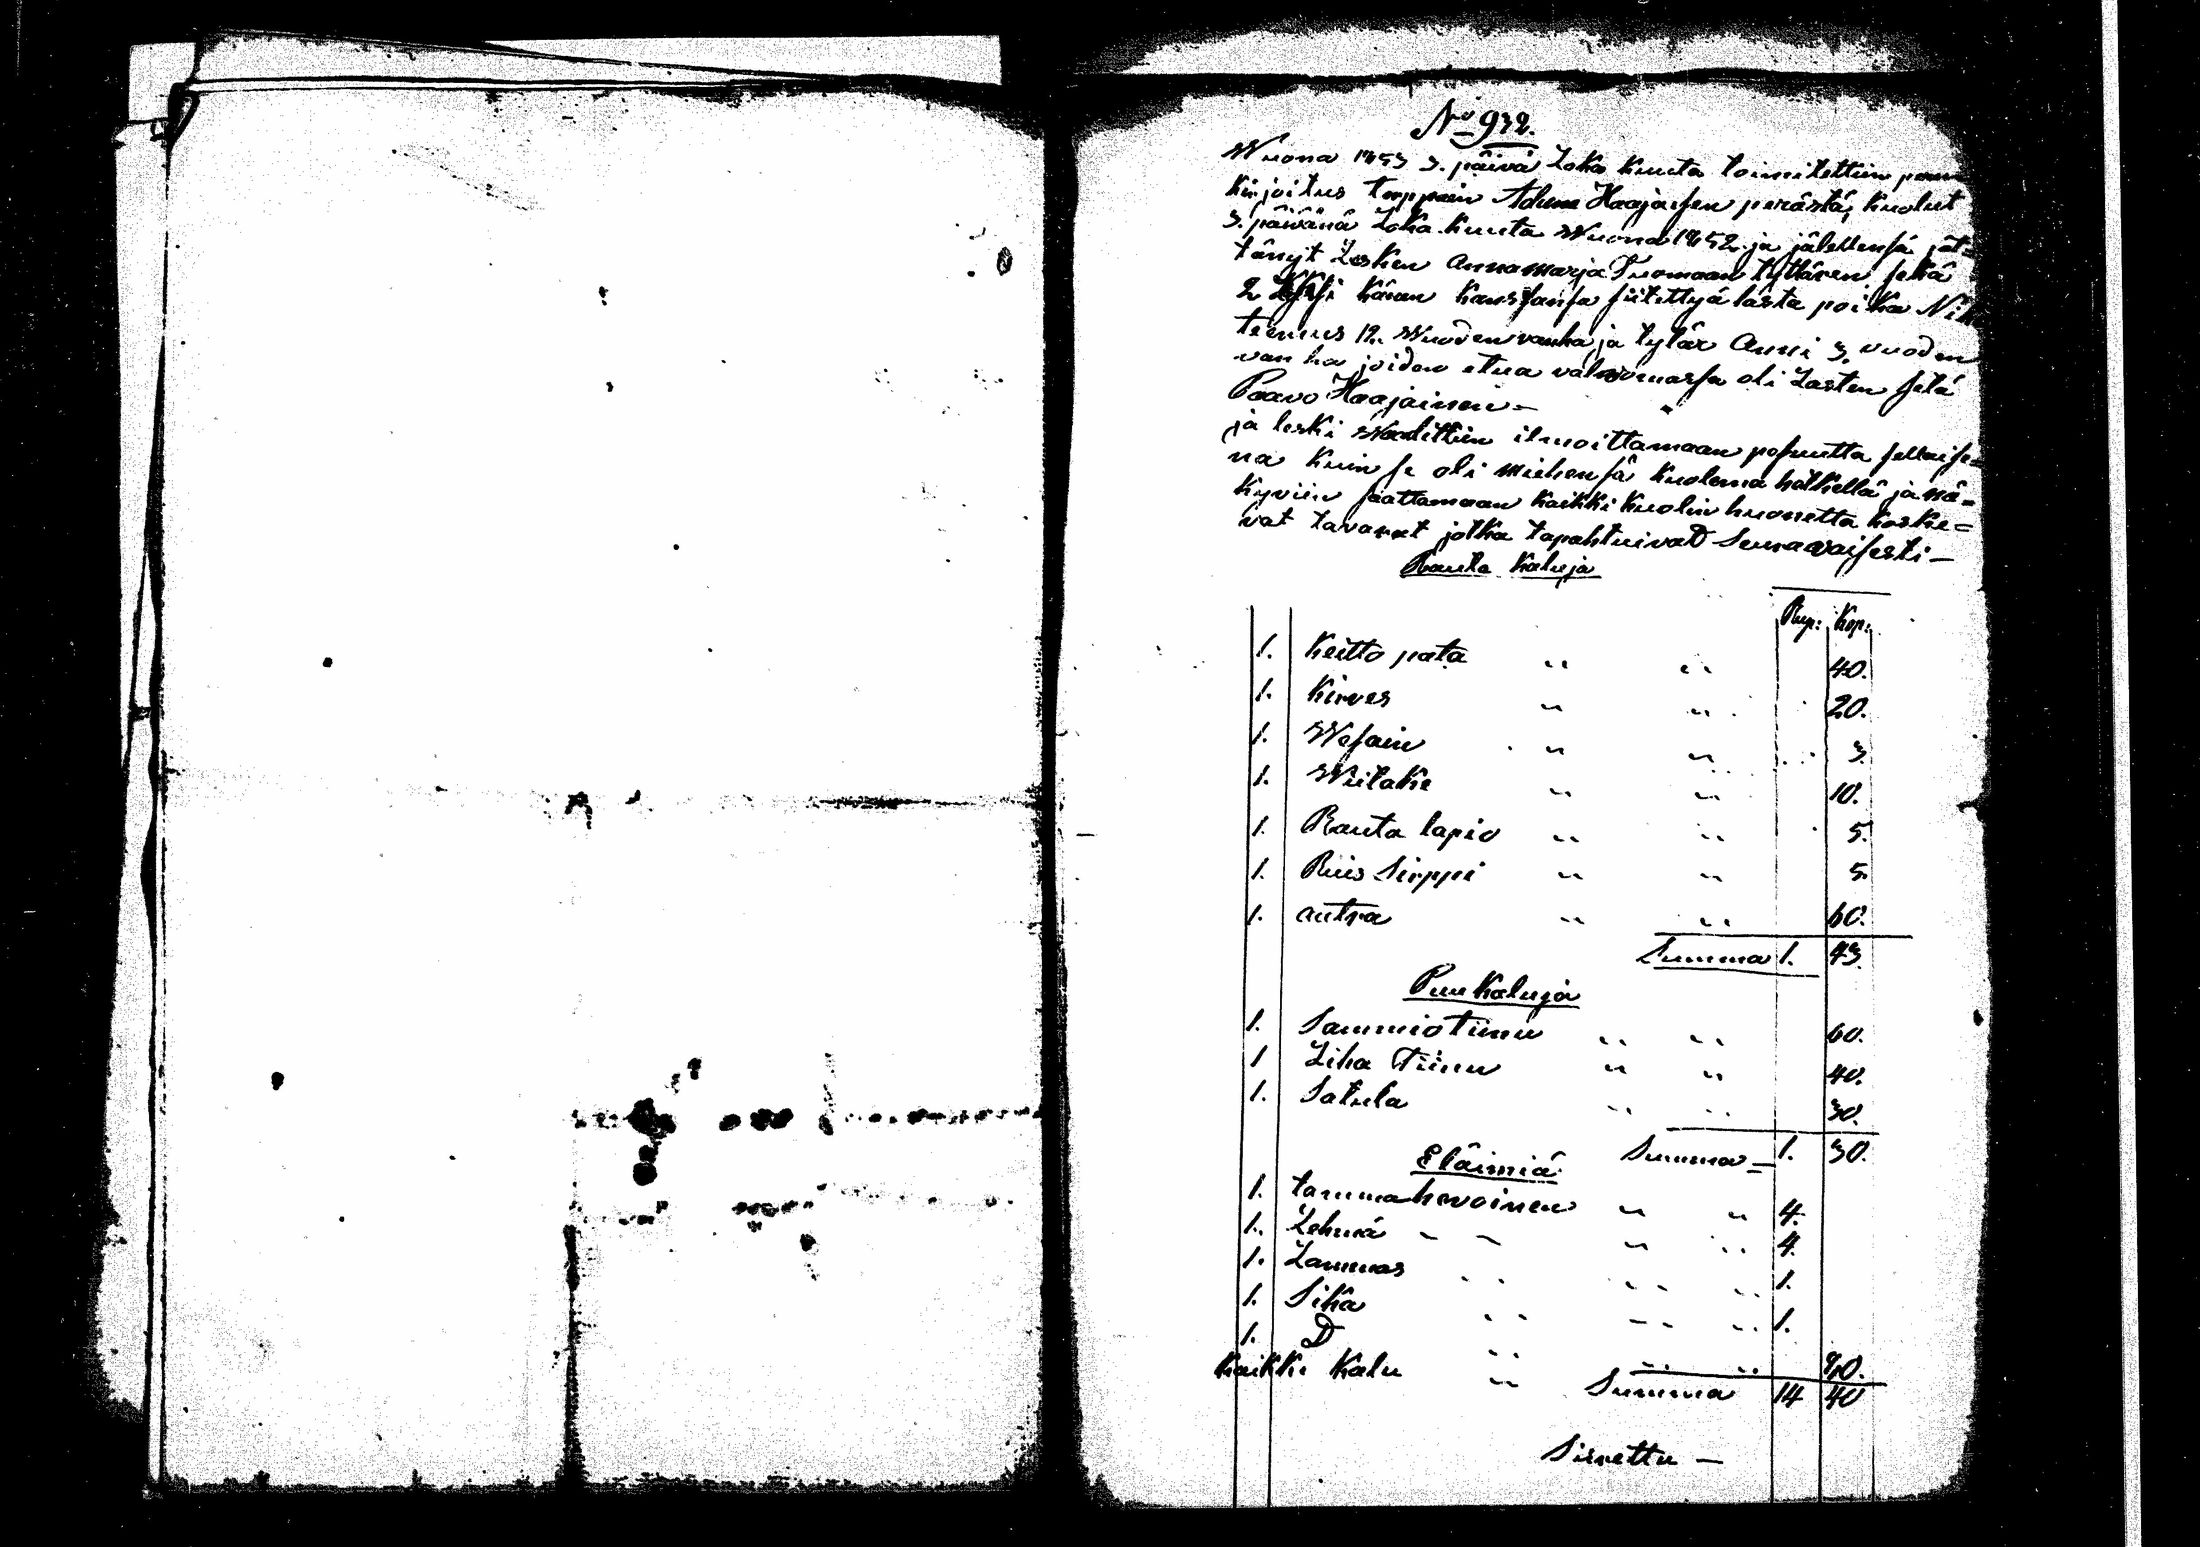 No 932.
Wuona 1853 3. päivä Loka kuuta toimitettiin perun
kirjoitus torppain Adam Haajasen perästä, kuolut
3. päiwänä Loka kuuta Wuona 1852 ja jälellensä jät=
tänyt Lesken Annamarja Tuomaan tyttären sekä
2 hänen kanssansa siitettyä lasta poika Nik
teemus 19. Wuoden vanha ja tytär Anni 3. vuoden
van ha joiden etua valwomassa oli Lasten setä
Paavo Haajainen —
ja leski Waadittiin ilmoittamaan pesuutta sellaise=
na kuin se oli miehensä kuolema hetkellä ja nä=
kyviin saattamaan kaikki kuolin huonetta koske=
vat tavarat jotka tapahtuivat Seuraavaisesti —
Rauta kaluja
Rup: Kop:
1. Keitto pata " " 40.
1. Kirves " " 20.
1. Wesain " " 3.
1. Wiilake " " 10.
1. Rauta lapio " " 5.
1. Riis Sirppi " " 5.
1. autra " " 60.
Summa 1. 43.
Puu Kaluja
1. Sammio tiinu " " 60.
1 Liha Tiinu " " 40.
1. Satula " " 30.
Summa = 1. 30.
Eläimiä
1. tamma hevoinen " " 4.
1. Lehmä " " 4.
1. Lammas " " 1.
1. Sika " " 1.
1. D
Kaikki Kalu " " 40.
Summa 14 40
Siirettu —